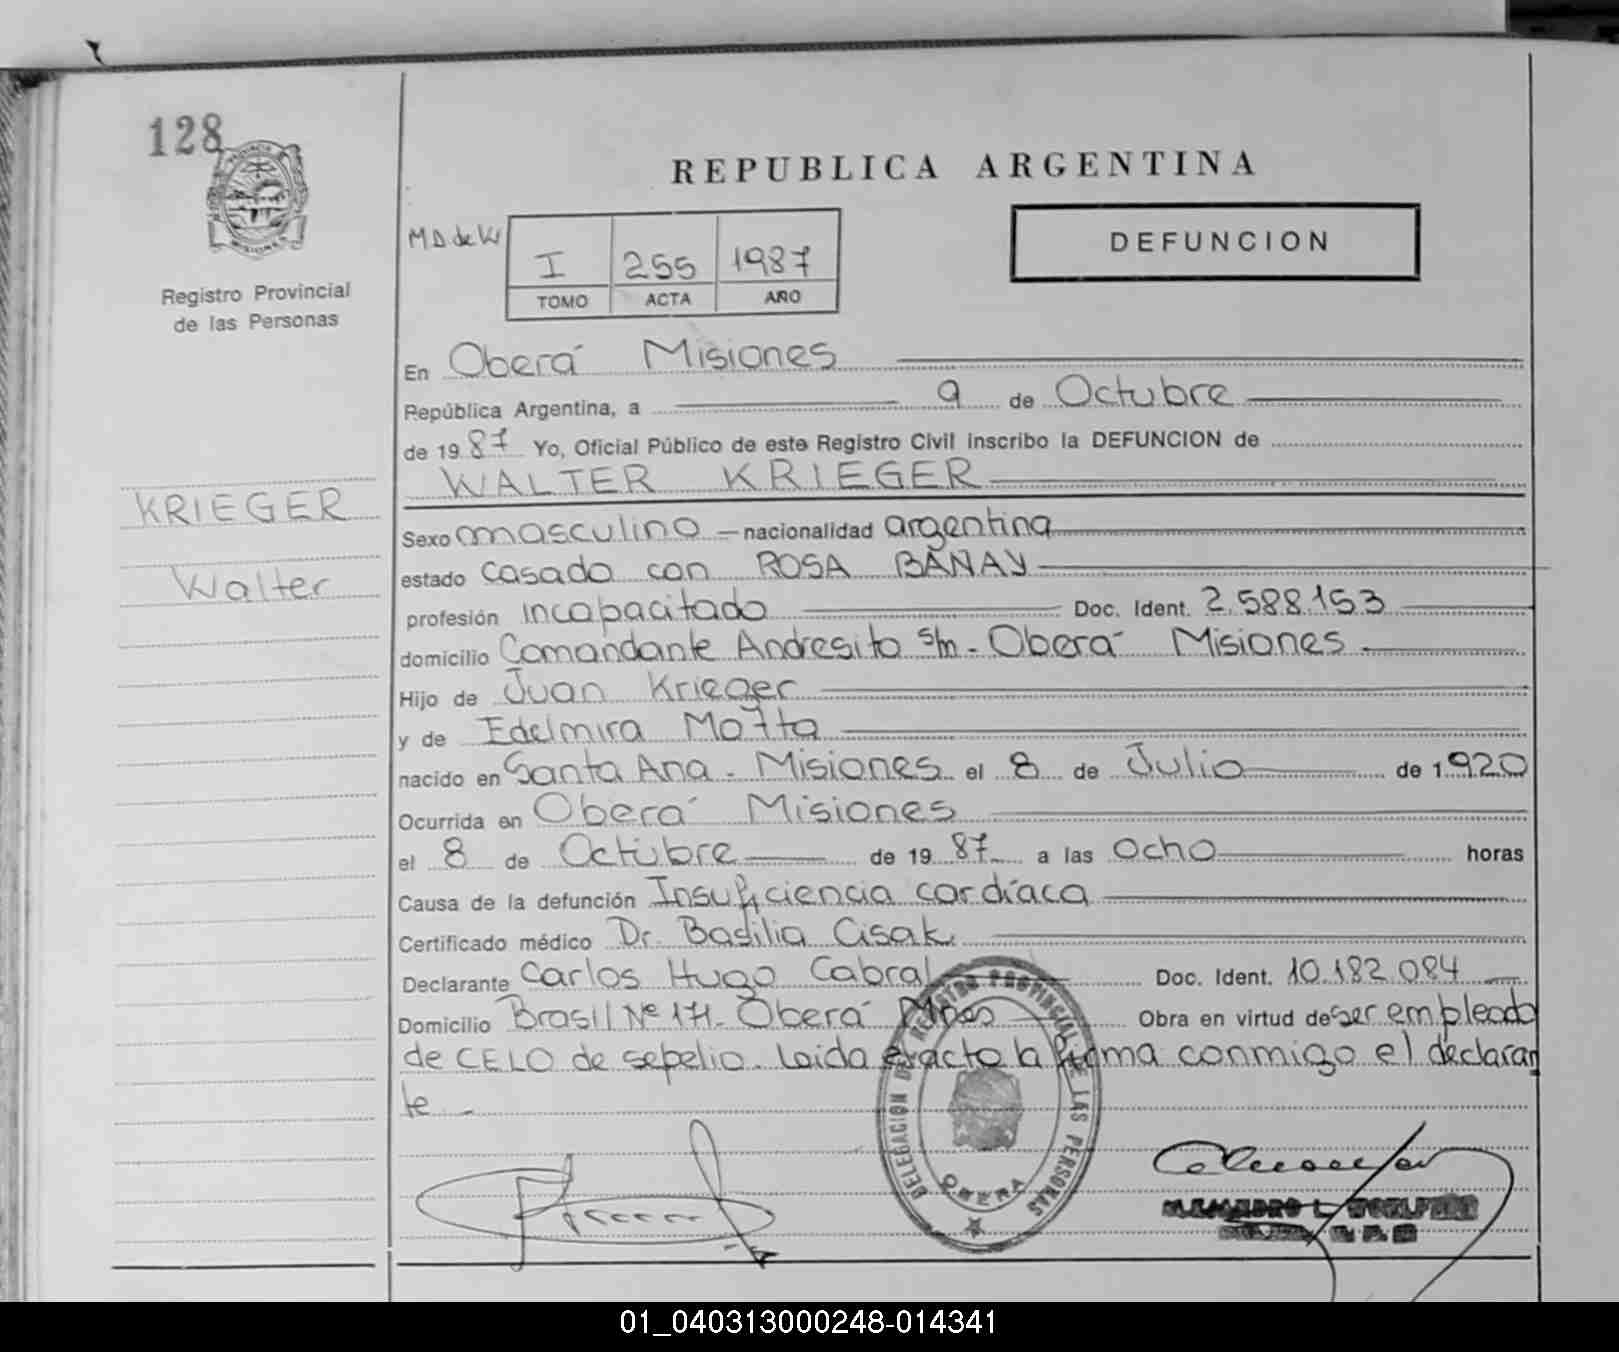 128
PROVINCIA
MISIONES
Registro Provincial
de las Personas
KRIEGER
Walter
REPUBLICA ARGENTINA
M D de Kr
I 255 1987
TOMO ACTA AÑO
DEFUNCION
En Oberá Misiones
República Argentina, a 9 de Octubre
de 1987 Yo, Oficial Público de este Registro Civil inscribo la DEFUNCION de
WALTER KRIEGER
Sexo masculino – nacionalidad argentina
estado casado con ROSA BAÑAY
profesión incapacitado Doc. Ident. 2.588.153
domicilio Comandante Andresito s/n - Oberá Misiones
Hijo de Juan Krieger
y de Edelmira Motta
nacido en Santa Ana - Misiones el 8 de Julio de 1920
Ocurrida en Oberá Misiones
el 8 de Octubre de 1987 a las ocho horas
Causa de la defunción Insuficiencia cardíaca
Certificado médico Dr. Basilia Cisak
Declarante Carlos Hugo Cabral Doc. Ident. 10.182.084
Domicilio Brasil Nº 171 - Oberá Mnes Obra en virtud de ser empleado
de CELO de sepelio. Leida el acta la firma conmigo el declaran
te -
DELEGACION DEL REGISTRO PROVINCIAL DE LAS PERSONAS
OBERA
01_040313000248-014341